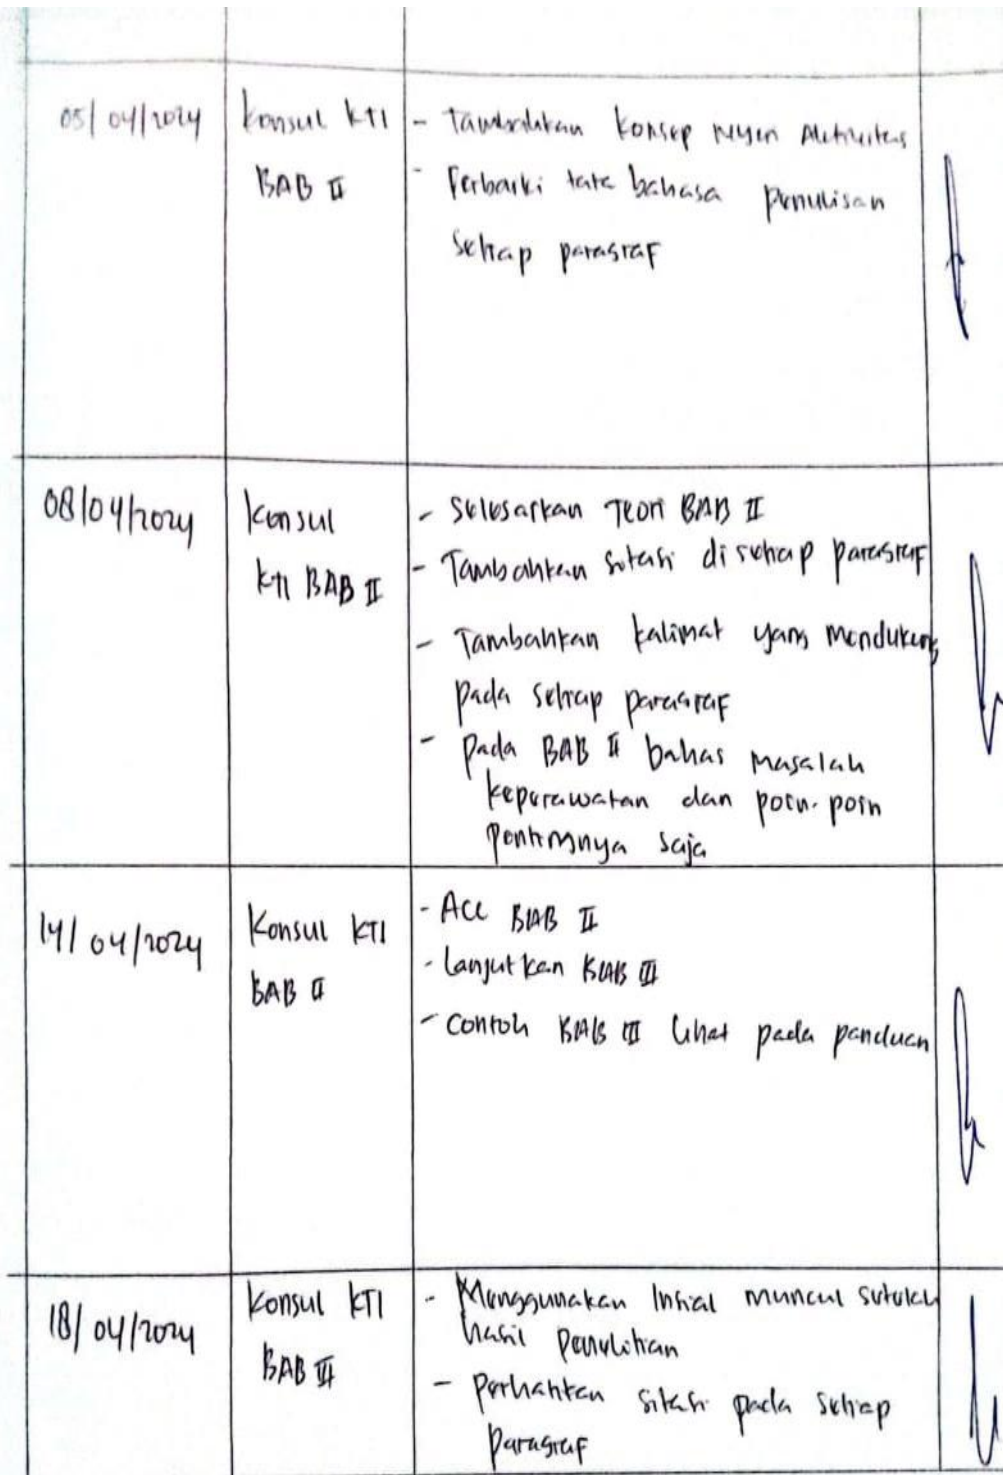 05/04/2024
Konsul KTI
BAB II
- Tambahkan Konsep Nyeri Aktivitas
- Perbaiki tata bahasa penulisan
setiap paragraf
08/04/2024
Konsul
KTI BAB II
- Selesaikan Teori BAB II
- Tambahkan sitasi di setiap paragraf
- Tambahkan kalimat yang mendukung
pada setiap paragraf
- pada BAB II bahas masalah
keperawatan dan poin-poin
pentingnya saja
14/04/2024
Konsul KTI
BAB II
- Acc BAB II
- Lanjutkan BAB III
- Contoh BAB III lihat pada panduan
18/04/2024
Konsul KTI
BAB III
- Menggunakan Inisial muncul setelah
hasil penelitian
- Perhatikan sitasi pada setiap
paragraf